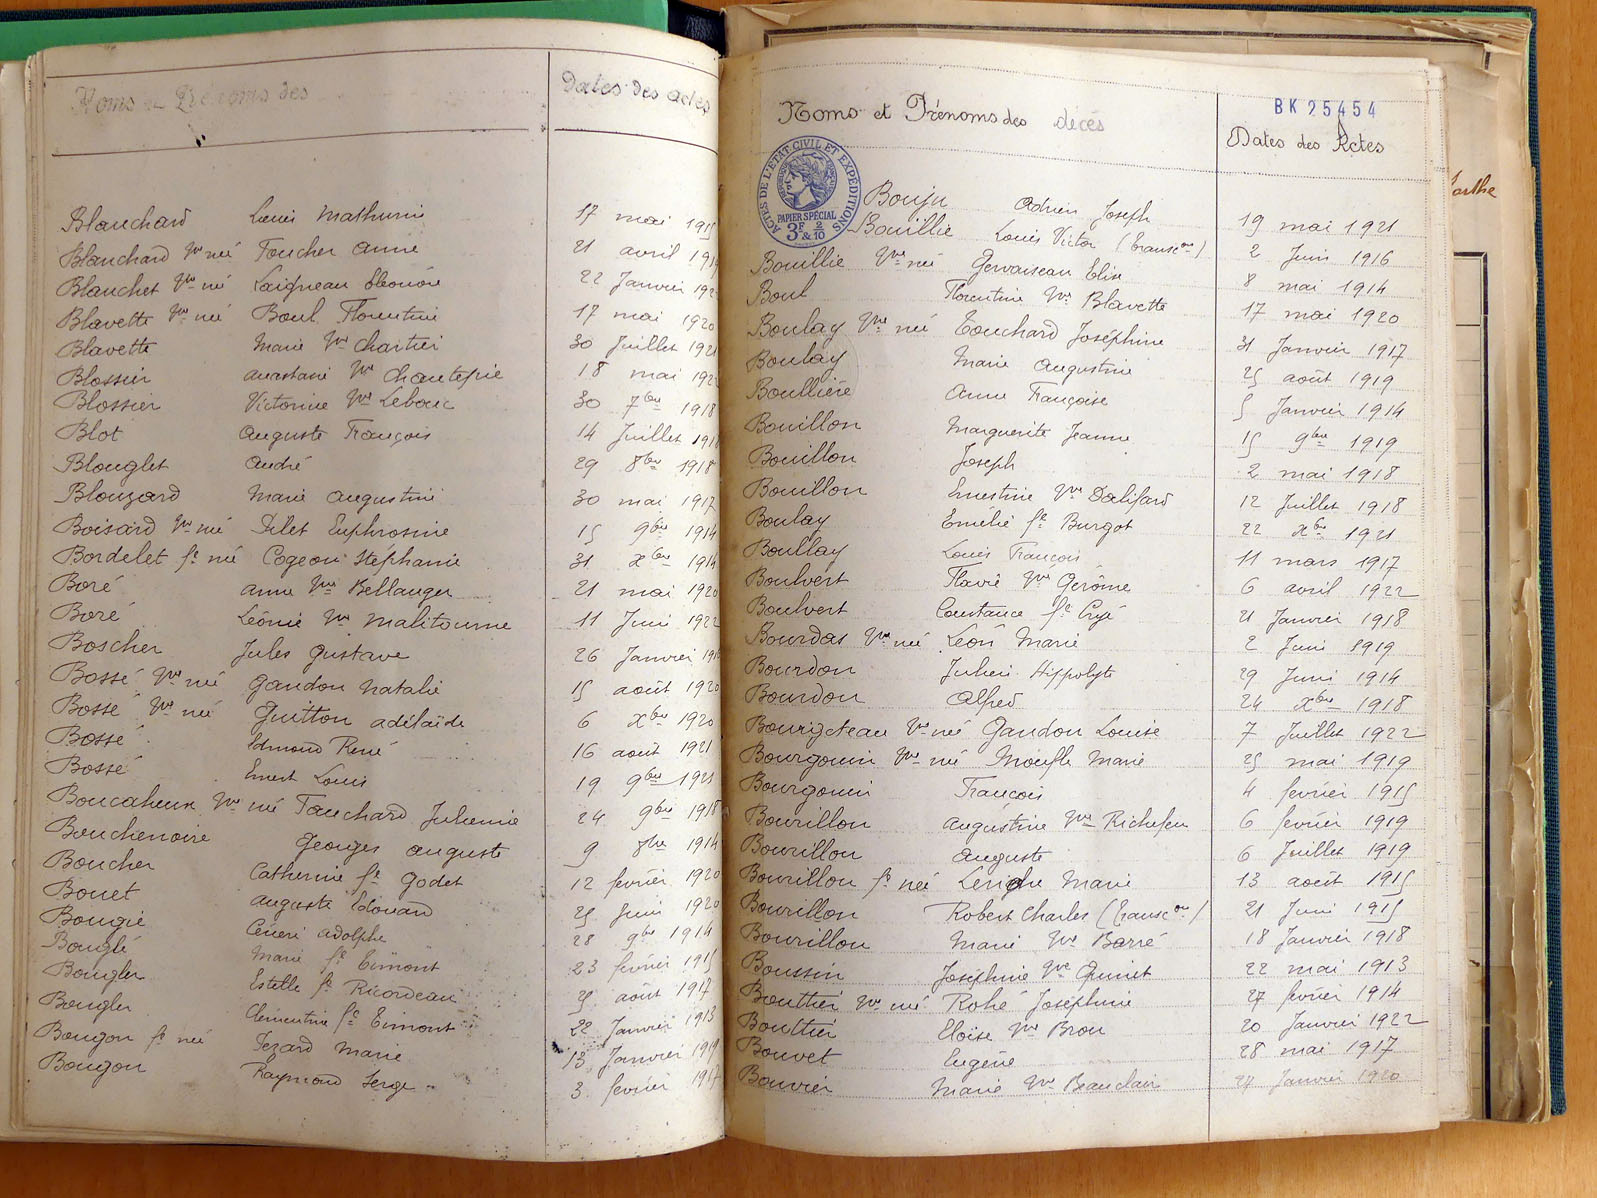 Noms et Prénoms des
Dates des actes
Blanchard Louis Mathurin 17 mai 1915
Blanchard Vve née Foucher Anne 21 avril 191
Blanchet Vve née Laigneau Eléonore 22 Janvier 192
Blavette Vve née Boul Florentine 17 mai 1920
Blavette Marie Vve Chartier 30 Juillet 1921
Blossier Anastasie Vve Chantepie 18 mai 192
Blossier Victorine Vve Lebouc 30 7bre 1918
Blot Auguste François 14 Juillet 1918
Blouglet André 29 8bre 1918
Blouzard Marie Augustine 30 mai 1917
Boisard Vve née Pilet Euphrosine 15 9bre 1914
Bordelet fe née Cogeon Stéphanie 31 Xbre 1914
Boré Anne Vve Bellanger 21 mai 1920
Boré Léonie Vve Malitourne 11 Juin 1922
Boscher Jules Gustave 26 Janvier 191
Bossé Vve née Gandon Natalie 15 août 1920
Bossé Vve née Guitton Adélaïde 6 Xbre 1920
Bossé Edmond René 16 août 1921
Bossé Ernest Louis 19 9bre 1921
Boucaheux Vve née Touchard Julienne 24 9bre 1918
Bouchenoire Georges Auguste 9 8bre 1914
Boucher Catherine fe Godet 12 février 1920
Bouet Auguste Edouard 25 Juin 1920
Bougie Céneri Adolphe 28 9bre 1914
Bouglé Marie fe Eimont 23 février 1915
Bougler Estelle fe Ricordeau 25 août 1917
Bougler Clémentine fe Eimont 22 Janvier 1913
Bougon fe née Pezard Marie 13 Janvier 1919
Bougon Raymond Serge 3 février 1917
BK 25454
Noms et Prénoms des décès
Dates des Actes
ACTES DE L'ETAT-CIVIL ET EXPÉDITIONS
PAPIER SPÉCIAL
3F & 2/10
Bouju Adrien Joseph 19 mai 1921
Bouillie Louis Victor (transcon) 2 Juin 1916
Bouillie Vve née Gervaiseau Elise 8 mai 1914
Boul Florentine Vve Blavette 17 mai 1920
Boulay Vve née Touchard Joséphine 31 Janvier 1917
Boulay Marie Augustine 25 août 1919
Boullière Anne Françoise 5 Janvier 1914
Bouillon Marguerite Jeanne 15 9bre 1919
Bouillon Joseph 2 mai 1918
Bouillon Ernestine Vve Dalifard 12 Juillet 1918
Boulay Emélie fe Burgot 22 Xbre 1921
Boullay Louis François 11 mars 1917
Boulvert Flavie Vve Gérôme 6 avril 1922
Boulvert Constance fe Cryé 21 Janvier 1918
Bourdas Vve née Léon Marie 2 Juin 1919
Bourdon Julien Hippolyte 29 Juin 1914
Bourdon Alfred 24 Xbre 1918
Bourigeteau Vve née Gandon Louise 7 Juillet 1922
Bourgouin Vve née Moufle Marie 25 mai 1919
Bourgouin François 4 février 1915
Bourillon Augustine Vve Richefeu 6 février 1919
Bourillon Auguste 6 Juillet 1919
Bourillon fe née Leriche Marie 13 août 1915
Bourillon Robert Charles (transcon) 21 Juin 1915
Bourillon Marie Vve Barré 18 Janvier 1918
Boussin Joséphine Vve Quinet 22 mai 1913
Bouttier Vve née Rohé Joséphine 27 février 1914
Bouttier Eloïse Vve Brou 20 Janvier 1922
Bouvet Eugénie 28 mai 1917
Bouvier Marie Vve Beauclair 27 Janvier 1920
arthe